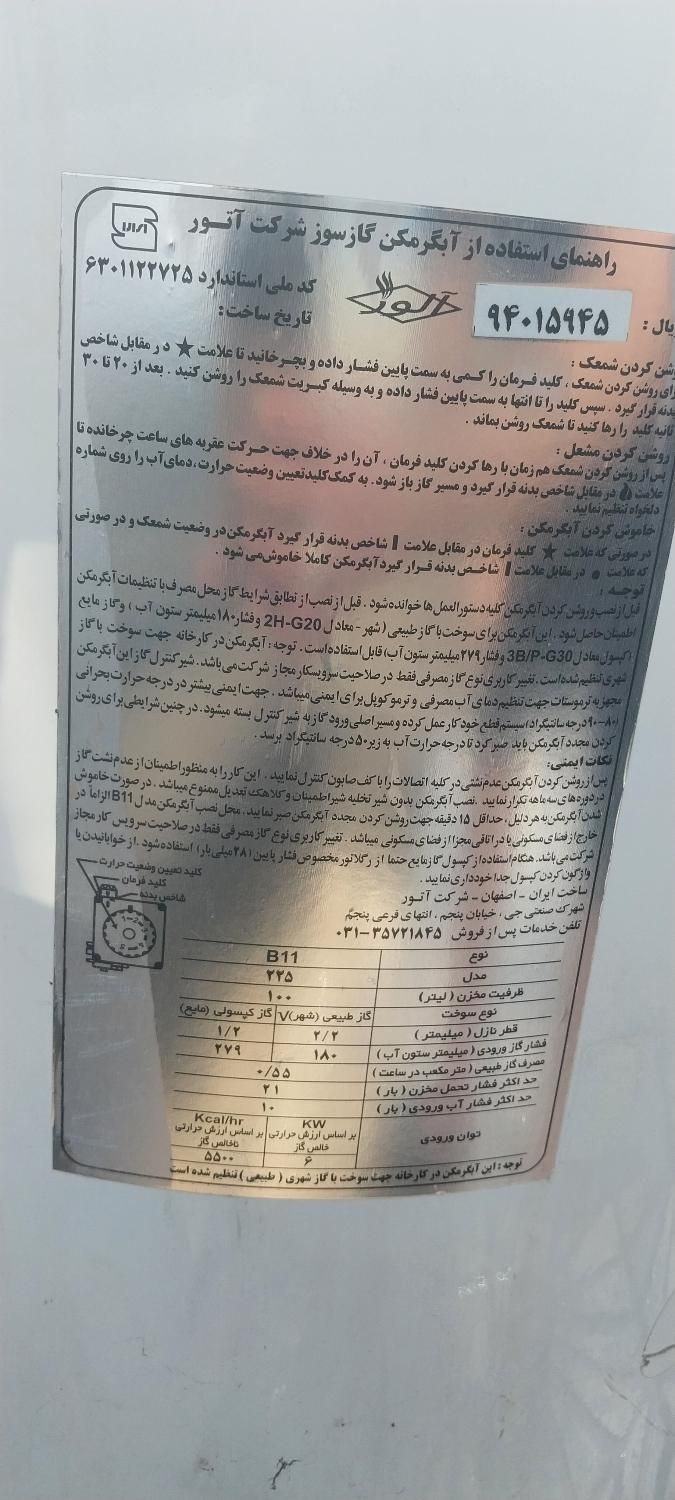 راهنمای استفاده از آبگرمکن گازسوز شرکت آتور
کد ملی استاندارد ۶۳۰۱۱۲۲۷۲۵
تاریخ ساخت:
یال: ۹۴۰۱۵۹۴۵
آتور
شن کردن شمعک:
رای روشن کردن شمعک، کلید فرمان را کمی به سمت پایین فشار داده و بچرخانید تا علامت ★ در مقابل شاخص
بدنه قرار گیرد. سپس کلید را تا انتها به سمت پایین فشار داده و به وسیله کبریت شمعک را روشن کنید. بعد از ۲۰ تا ۳۰
ثانیه کلید را رها کنید تا شمعک روشن بماند.
روشن کردن مشعل:
پس از روشن کردن شمعک هم زمان با رها کردن کلید فرمان، آن را در خلاف جهت حرکت عقربه های ساعت چرخانده تا
علامت در مقابل شاخص بدنه قرار گیرد و مسیر گاز باز شود. به کمک کلید تعیین وضعیت حرارت، دمای آب را روی شماره
دلخواه تنظیم نمایید.
خاموش کردن آبگرمکن:
در صورتی که علامت ★ کلید فرمان در مقابل علامت | شاخص بدنه قرار گیرد آبگرمکن در وضعیت شمعک و در صورتی
که علامت ● در مقابل علامت | شاخص بدنه قرار گیرد آبگرمکن کاملا خاموش می شود.
توجه:
قبل از نصب و روشن کردن آبگرمکن کلیه دستورالعمل ها خوانده شود. قبل از نصب از تطابق شرایط گاز محل مصرف با تنظیمات آبگرمکن
اطمینان حاصل شود. این آبگرمکن برای سوخت با گاز طبیعی (شهر - معادل 2H-G20 و فشار ۱۸۰ میلیمتر ستون آب) و گاز مایع
(کپسول معادل 3B/P-G30 و فشار ۲۷۹ میلیمتر ستون آب) قابل استفاده است. توجه: آبگرمکن در کارخانه جهت سوخت با گاز
شهری تنظیم شده است. تغییر کاربری نوع گاز مصرفی فقط در صلاحیت سرویسکار مجاز شرکت می باشد. شیر کنترل گاز این آبگرمکن
مجهز به ترموستات جهت تنظیم دمای آب مصرفی و ترموکوپل برای ایمنی میباشد. جهت ایمنی بیشتر در درجه حرارت بحرانی
(۸۰-۹۰ درجه سانتیگراد) سیستم قطع خودکار عمل کرده و مسیر اصلی ورود گاز به شیر کنترل بسته میشود. در چنین شرایطی برای روشن
کردن مجدد آبگرمکن باید صبر کرد تا درجه حرارت آب به زیر ۵۰ درجه سانتیگراد برسد.
نکات ایمنی:
پس از روشن کردن آبگرمکن عدم نشتی در کلیه اتصالات را با کف صابون کنترل نمایید. این کار را به منظور اطمینان از عدم نشت گاز
در دوره های سه ماهه تکرار نمایید. نصب آبگرمکن بدون شیر تخلیه شیر اطمینان و کلاهک تعدیل ممنوع میباشد. در صورت خاموش
شدن آبگرمکن به هر دلیل، حداقل ۱۵ دقیقه جهت روشن کردن مجدد آبگرمکن صبر نمایید. محل نصب آبگرمکن مدل B11 الزاماً در
خارج از فضای مسکونی یا در اتاقی مجزا از فضای مسکونی میباشد. تغییر کاربری نوع گاز مصرفی فقط در صلاحیت سرویس کار مجاز
شرکت می باشد. هنگام استفاده از کپسول گاز مایع حتما از رگلاتور مخصوص فشار پایین (۲۸ میلی بار) استفاده شود. از خوابانیدن یا
واژگون کردن کپسول جدا خودداری نمایید.
ساخت ایران - اصفهان - شرکت آتور
شهرک صنعتی جی، خیابان پنجم، انتهای فرعی پنجم
تلفن خدمات پس از فروش ۳۵۷۲۱۸۴۵-۰۳۱
کلید تعیین وضعیت حرارت
کلید فرمان
شاخص بدنه
نوع B11
مدل ۲۲۵
ظرفیت مخزن (لیتر) ۱۰۰
نوع سوخت گاز طبیعی (شهر)√ گاز کپسولی (مایع)
قطر نازل (میلیمتر) ۲/۲ ۱/۲
فشار گاز ورودی (میلیمتر ستون آب) ۱۸۰ ۲۷۹
مصرف گاز طبیعی (متر مکعب در ساعت) ۰/۵۵
حد اکثر فشار تحمل مخزن (بار) ۲۱
حد اکثر فشار آب ورودی (بار) ۱۰
توان ورودی KW بر اساس ارزش حرارتی خالص گاز Kcal/hr بر اساس ارزش حرارتی ناخالص گاز
۶ ۵۵۰۰
توجه: این آبگرمکن در کارخانه جهت سوخت با گاز شهری (طبیعی) تنظیم شده است